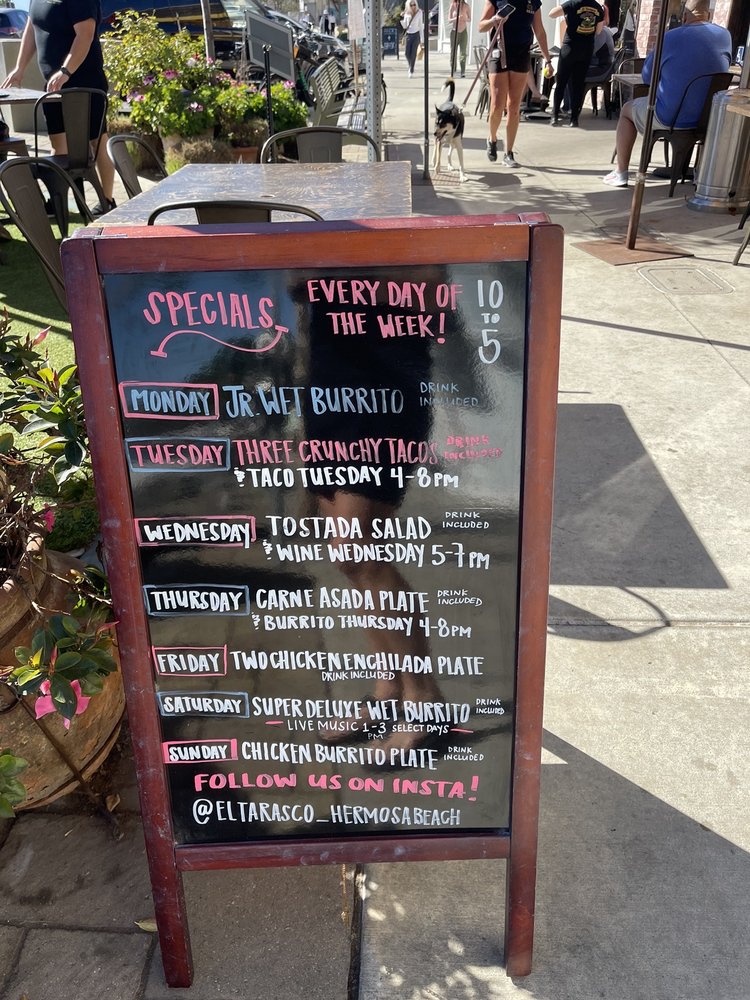 SPECIALS EVERY DAY OF THE WEEK! 10 TO 5
MONDAY JR. WET BURRITO DRINK INCLUDED
TUESDAY THREE CRUNCHY TACOS DRINK INCLUDED
& TACO TUESDAY 4-8PM
WEDNESDAY TOSTADA SALAD DRINK INCLUDED
& WINE WEDNESDAY 5-7PM
THURSDAY CARNE ASADA PLATE DRINK INCLUDED
& BURRITO THURSDAY 4-8PM
FRIDAY TWO CHICKEN ENCHILADA PLATE
DRINK INCLUDED
SATURDAY SUPER DELUXE WET BURRITO DRINK INCLUDED
LIVE MUSIC 1-3 PM SELECT DAYS
SUNDAY CHICKEN BURRITO PLATE DRINK INCLUDED
FOLLOW US ON INSTA!
@ELTARASCO_HERMOSABEACH